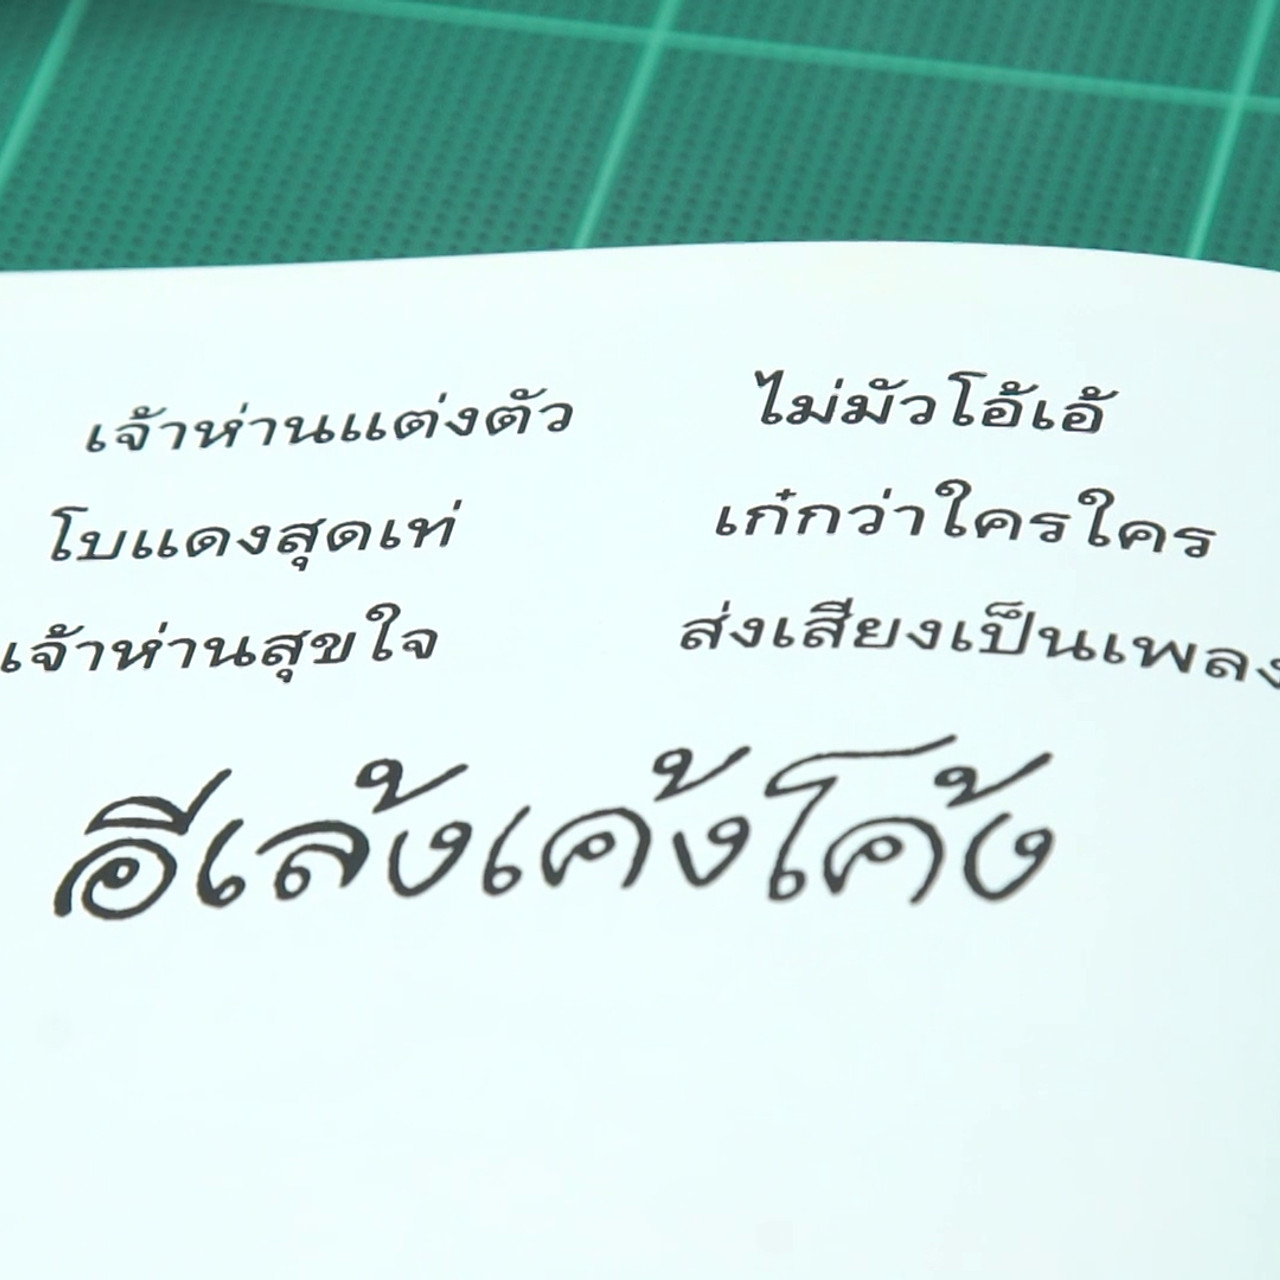 เจ้าห่านแต่งตัว ไม่มัวโอ้เอ้
โบแดงสุดเท่ เก๋กว่าใครใคร
เจ้าห่านสุขใจ ส่งเสียงเป็นเพลง
อีเล้งเค้งโค้ง